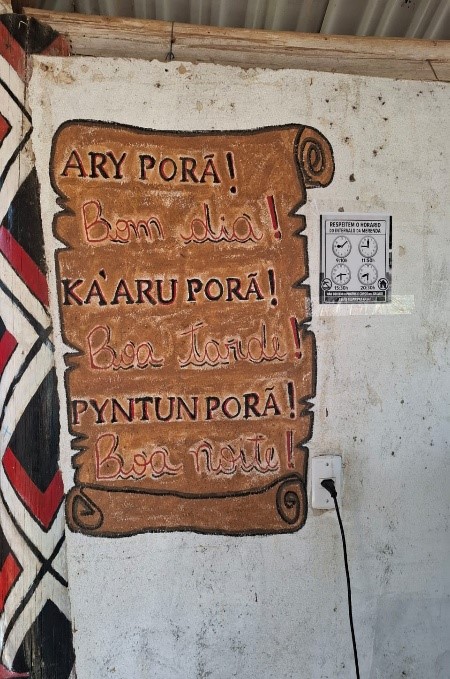 ARY PORÃ!
Bom dia!
KA'ARU PORÃ!
Boa Tarde!
PYNTUN PORÃ!
Boa noite!
RESPEITEM O HORÁRIO
DO INTERVALO DA MERENDA
9:10h
15:30h 20:30h